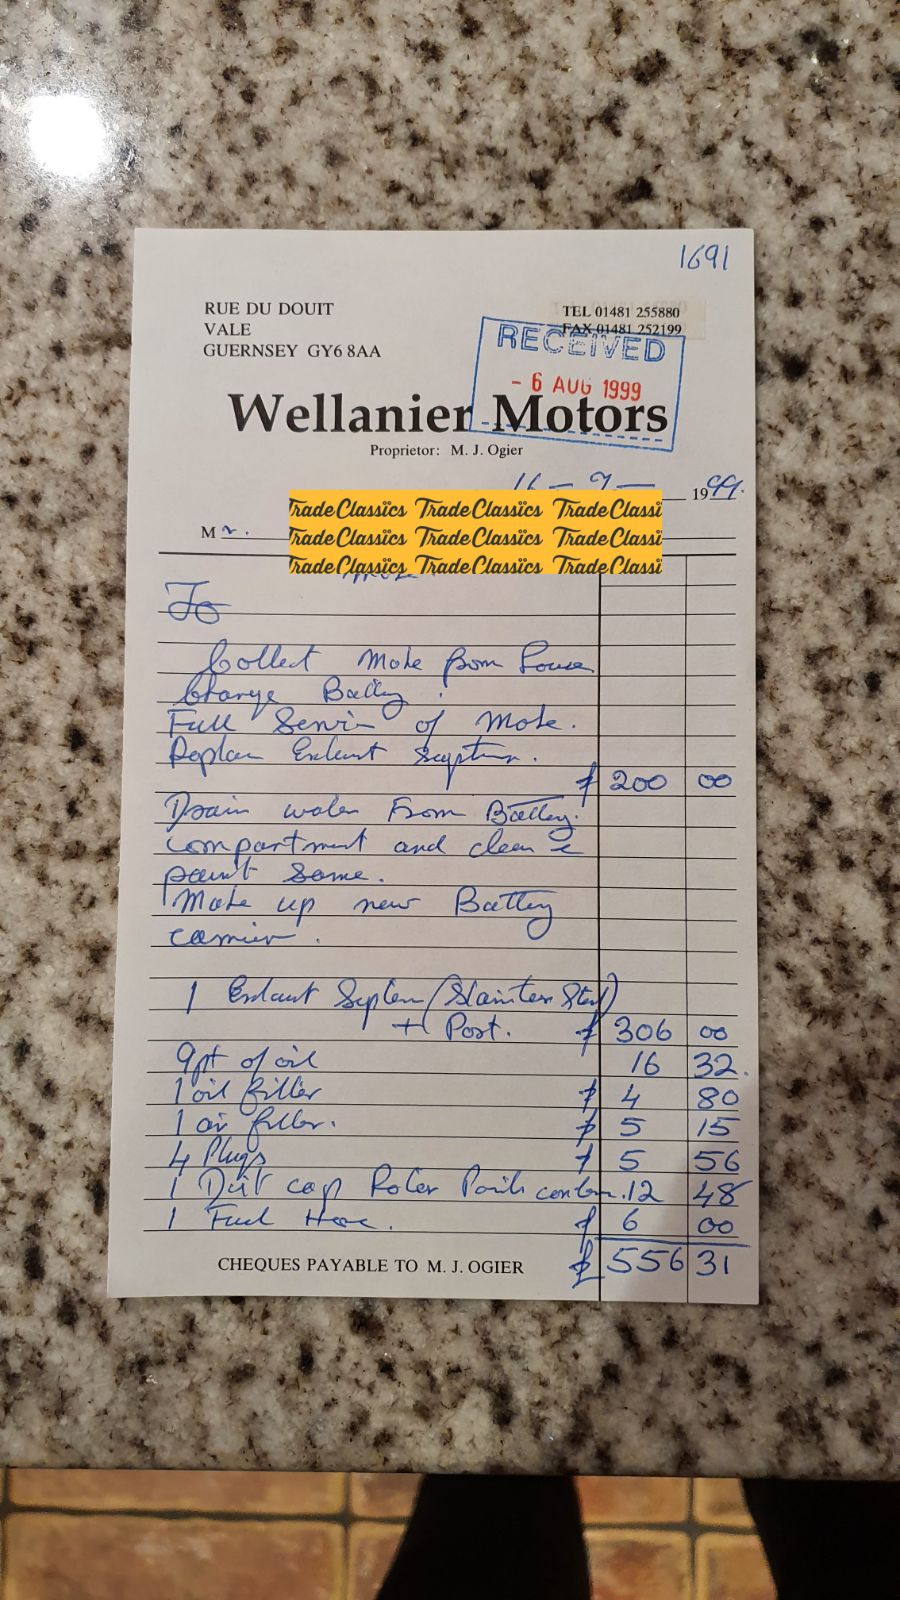 1691
RUE DU DOUIT
VALE
GUERNSEY GY6 8AA
TEL 01481 255880
FAX 01481 252199
RECEIVED
- 6 AUG 1999
Wellanier Motors
Proprietor: M. J. Ogier
16 - 7 - 1999.
Mr.
TradeClassics TradeClassics TradeClassi
TradeClassics TradeClassics TradeClassi
TradeClassics TradeClassics TradeClassi
To
Collect Moke from House
Change Battery.
Full Service of Moke.
Replace Exhaust System.
£ 200 00
Drain water From Battery.
compartment and clean &
paint same.
Make up new Battery
carrier.
1 Exhaust System (Stainless Steel)
+ Post. £ 306 00
9pt of oil 16 32.
1 oil filter £ 4 80
1 air filter. £ 5 15
4 Plugs £ 5 56
1 Dist cap Rotor Points conden. 12 48
1 Fuel Hose. £ 6 00
CHEQUES PAYABLE TO M. J. OGIER £ 556 31